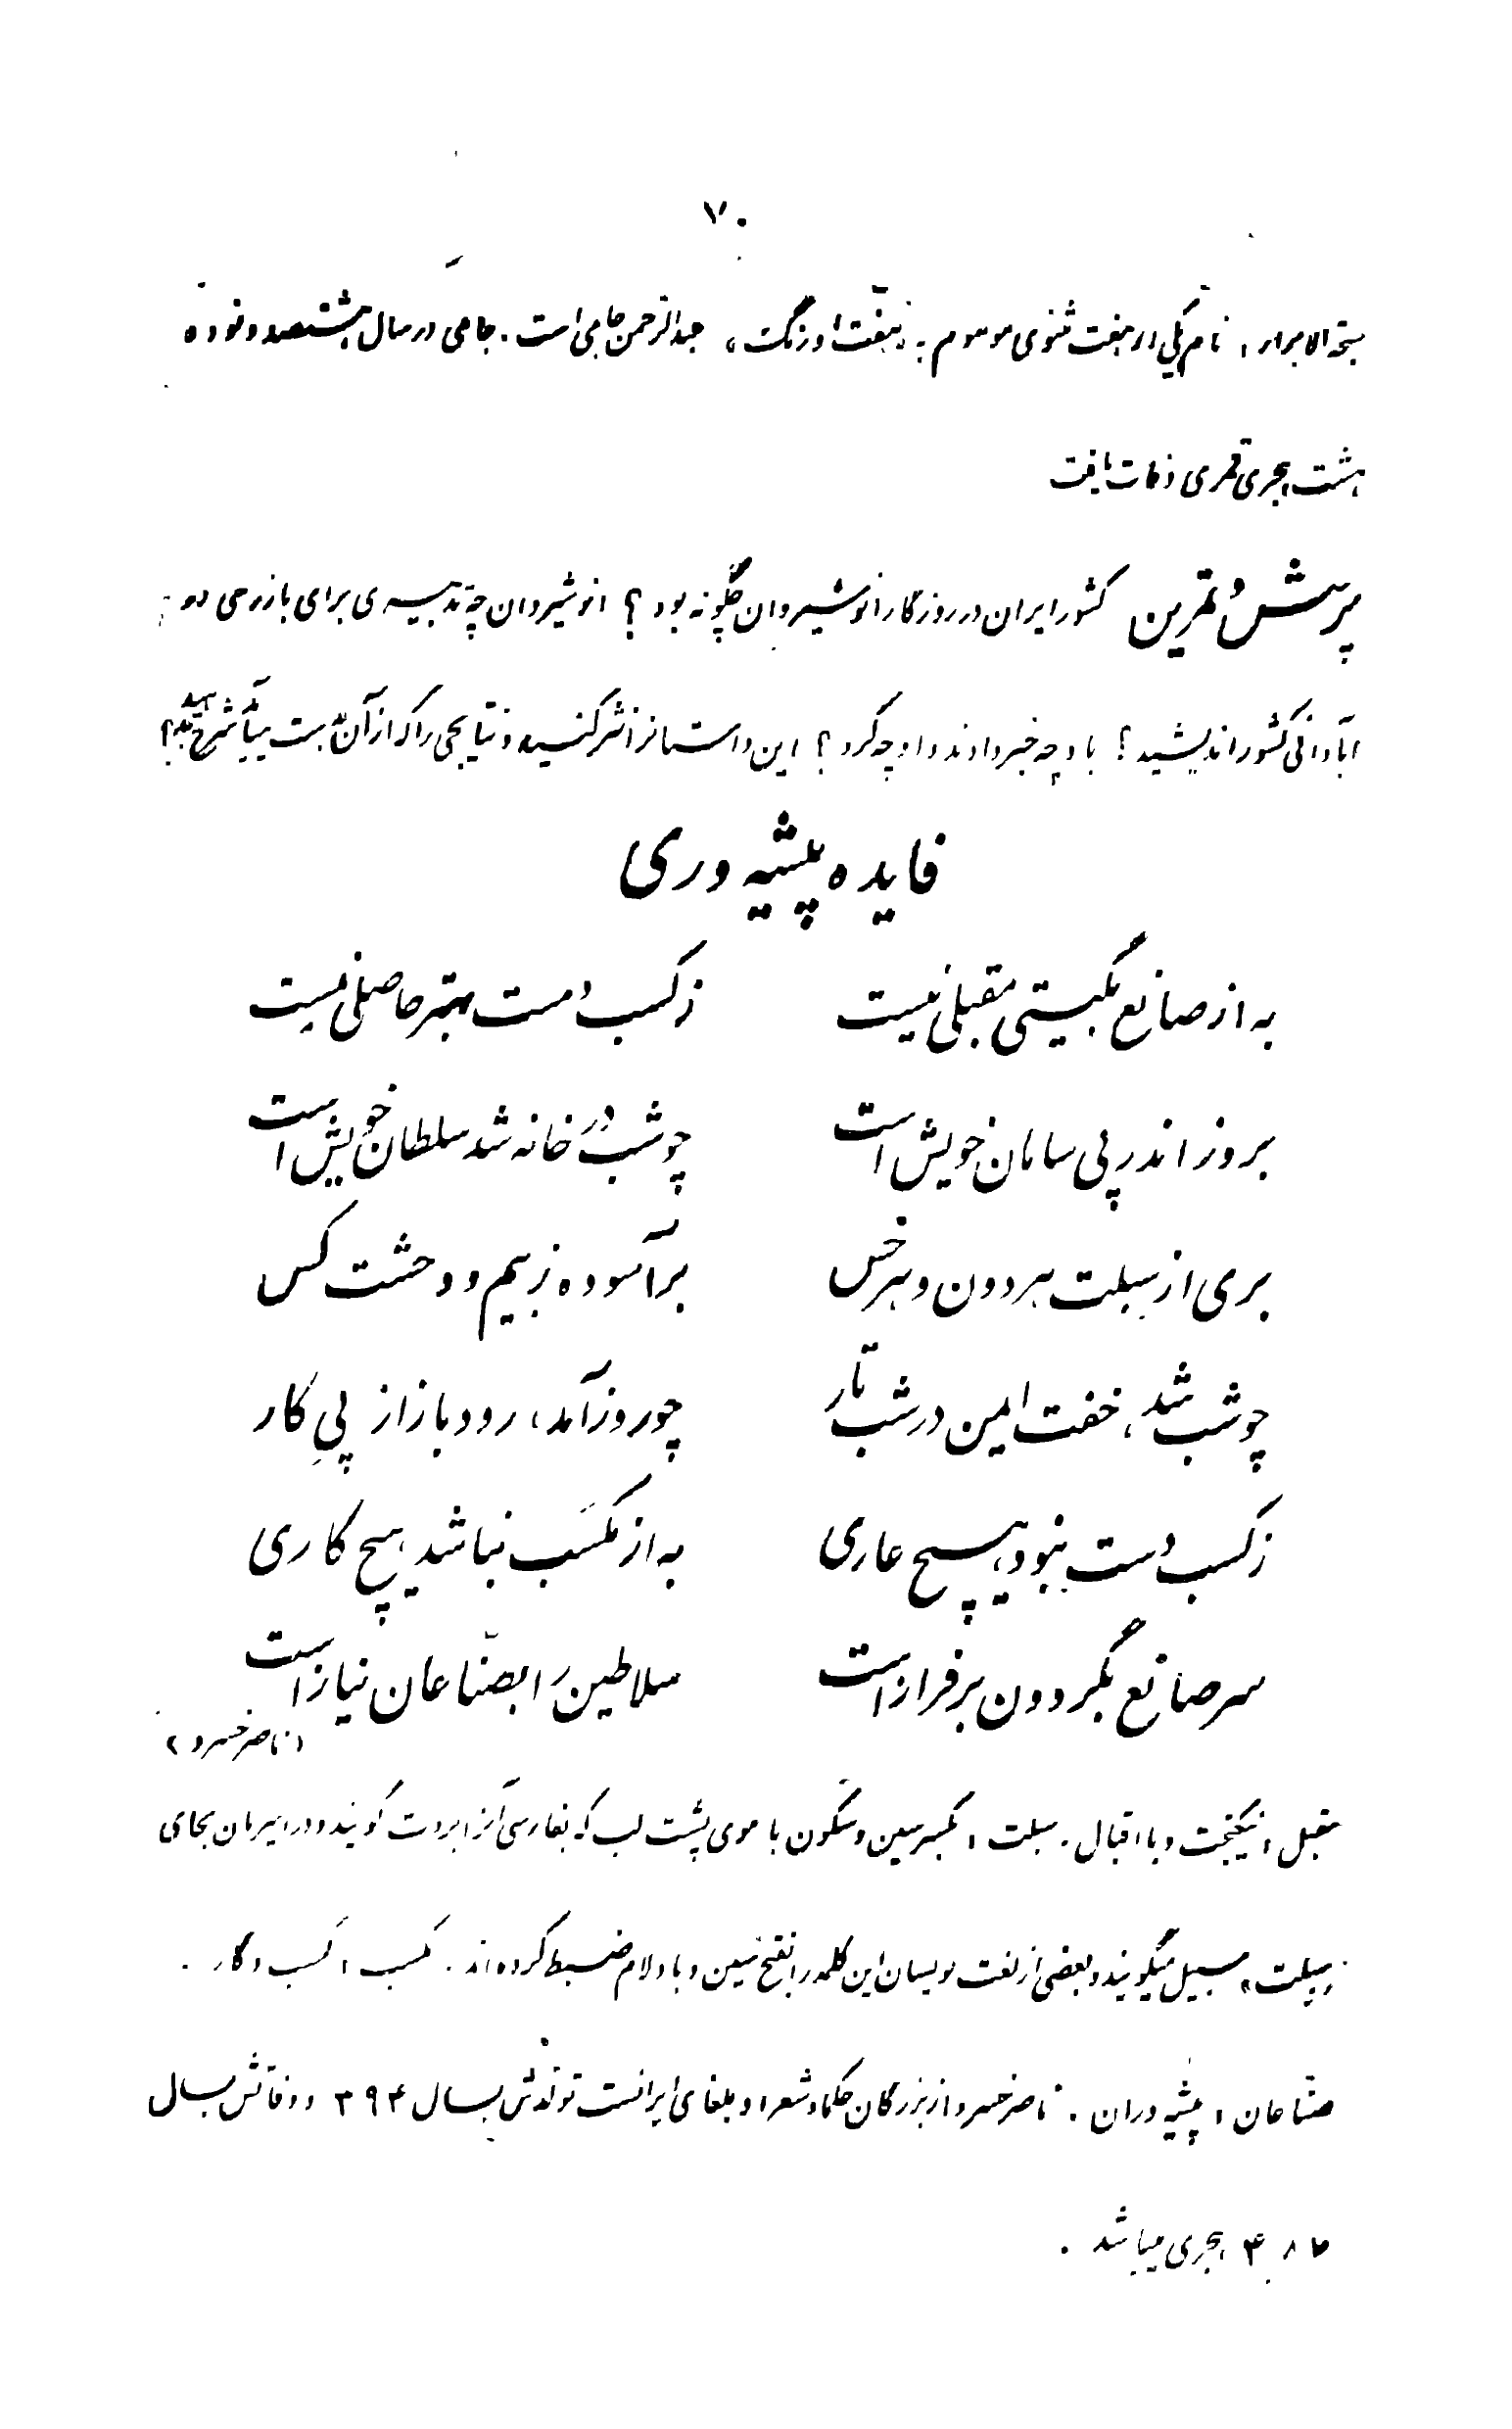 ۷۰
سبحةالابرار، نام یکی از هفت مثنوی موسوم به «هفت اورنگ» عبدالرحمن جامی است. جامی در سال هشتصد و نود و
هشت هجری قمری وفات یافت
پرسش و تمرین کشور ایران در روزگار انوشیروان چگونه بود؟ انوشیروان چه تدبیری برای بازرسی در
آبادانی کشور اندیشید؟ باو چه خبر دادند و او چه کرد؟ این داستانرا نثر کنید و نتایجی را که از آن بدست میآید شرح دهید؟
فایده پیشه وری
به از صانع بگیتی مقبلی نیست زکسب دست بهتر حاصلی نیست
بروز اندر پی سامان خویش است چو شب در خانه شد سلطان خویش است
بری از سبلت هر دون و هر خس برآسوده ز بیم و وحشت کس
چو شب شد، خفت ایمن در شب تار چو روز آمد، رود باز از پیِ کار
زکسب دست نبود هیچ عاری به از مکسَب نباشد هیچ کاری
سر صانع بگردون برفراز است سلاطین را بصنّاعان نیاز است
(ناصر خسرو)
مقبل، نیکبخت و با اقبال. سبلت، بکسر سین و سکون با موی پشت لب که بفارسی آنرا بروت گویند و در ایران بجای
«سبلت» سبیل میگویند و بعضی از لغت نویسان این کلمه را بفتح سین و با و لام ضبط کرده‌اند. مکسب، کسب و کار.
صنّاعان، پیشه وران. ناصر خسرو از بزرگان حکما و شعرا و بلغای ایرانست تولّدش بسال ۳۹۴ و وفاتش بسال
۴۸۱ هجری میباشد.